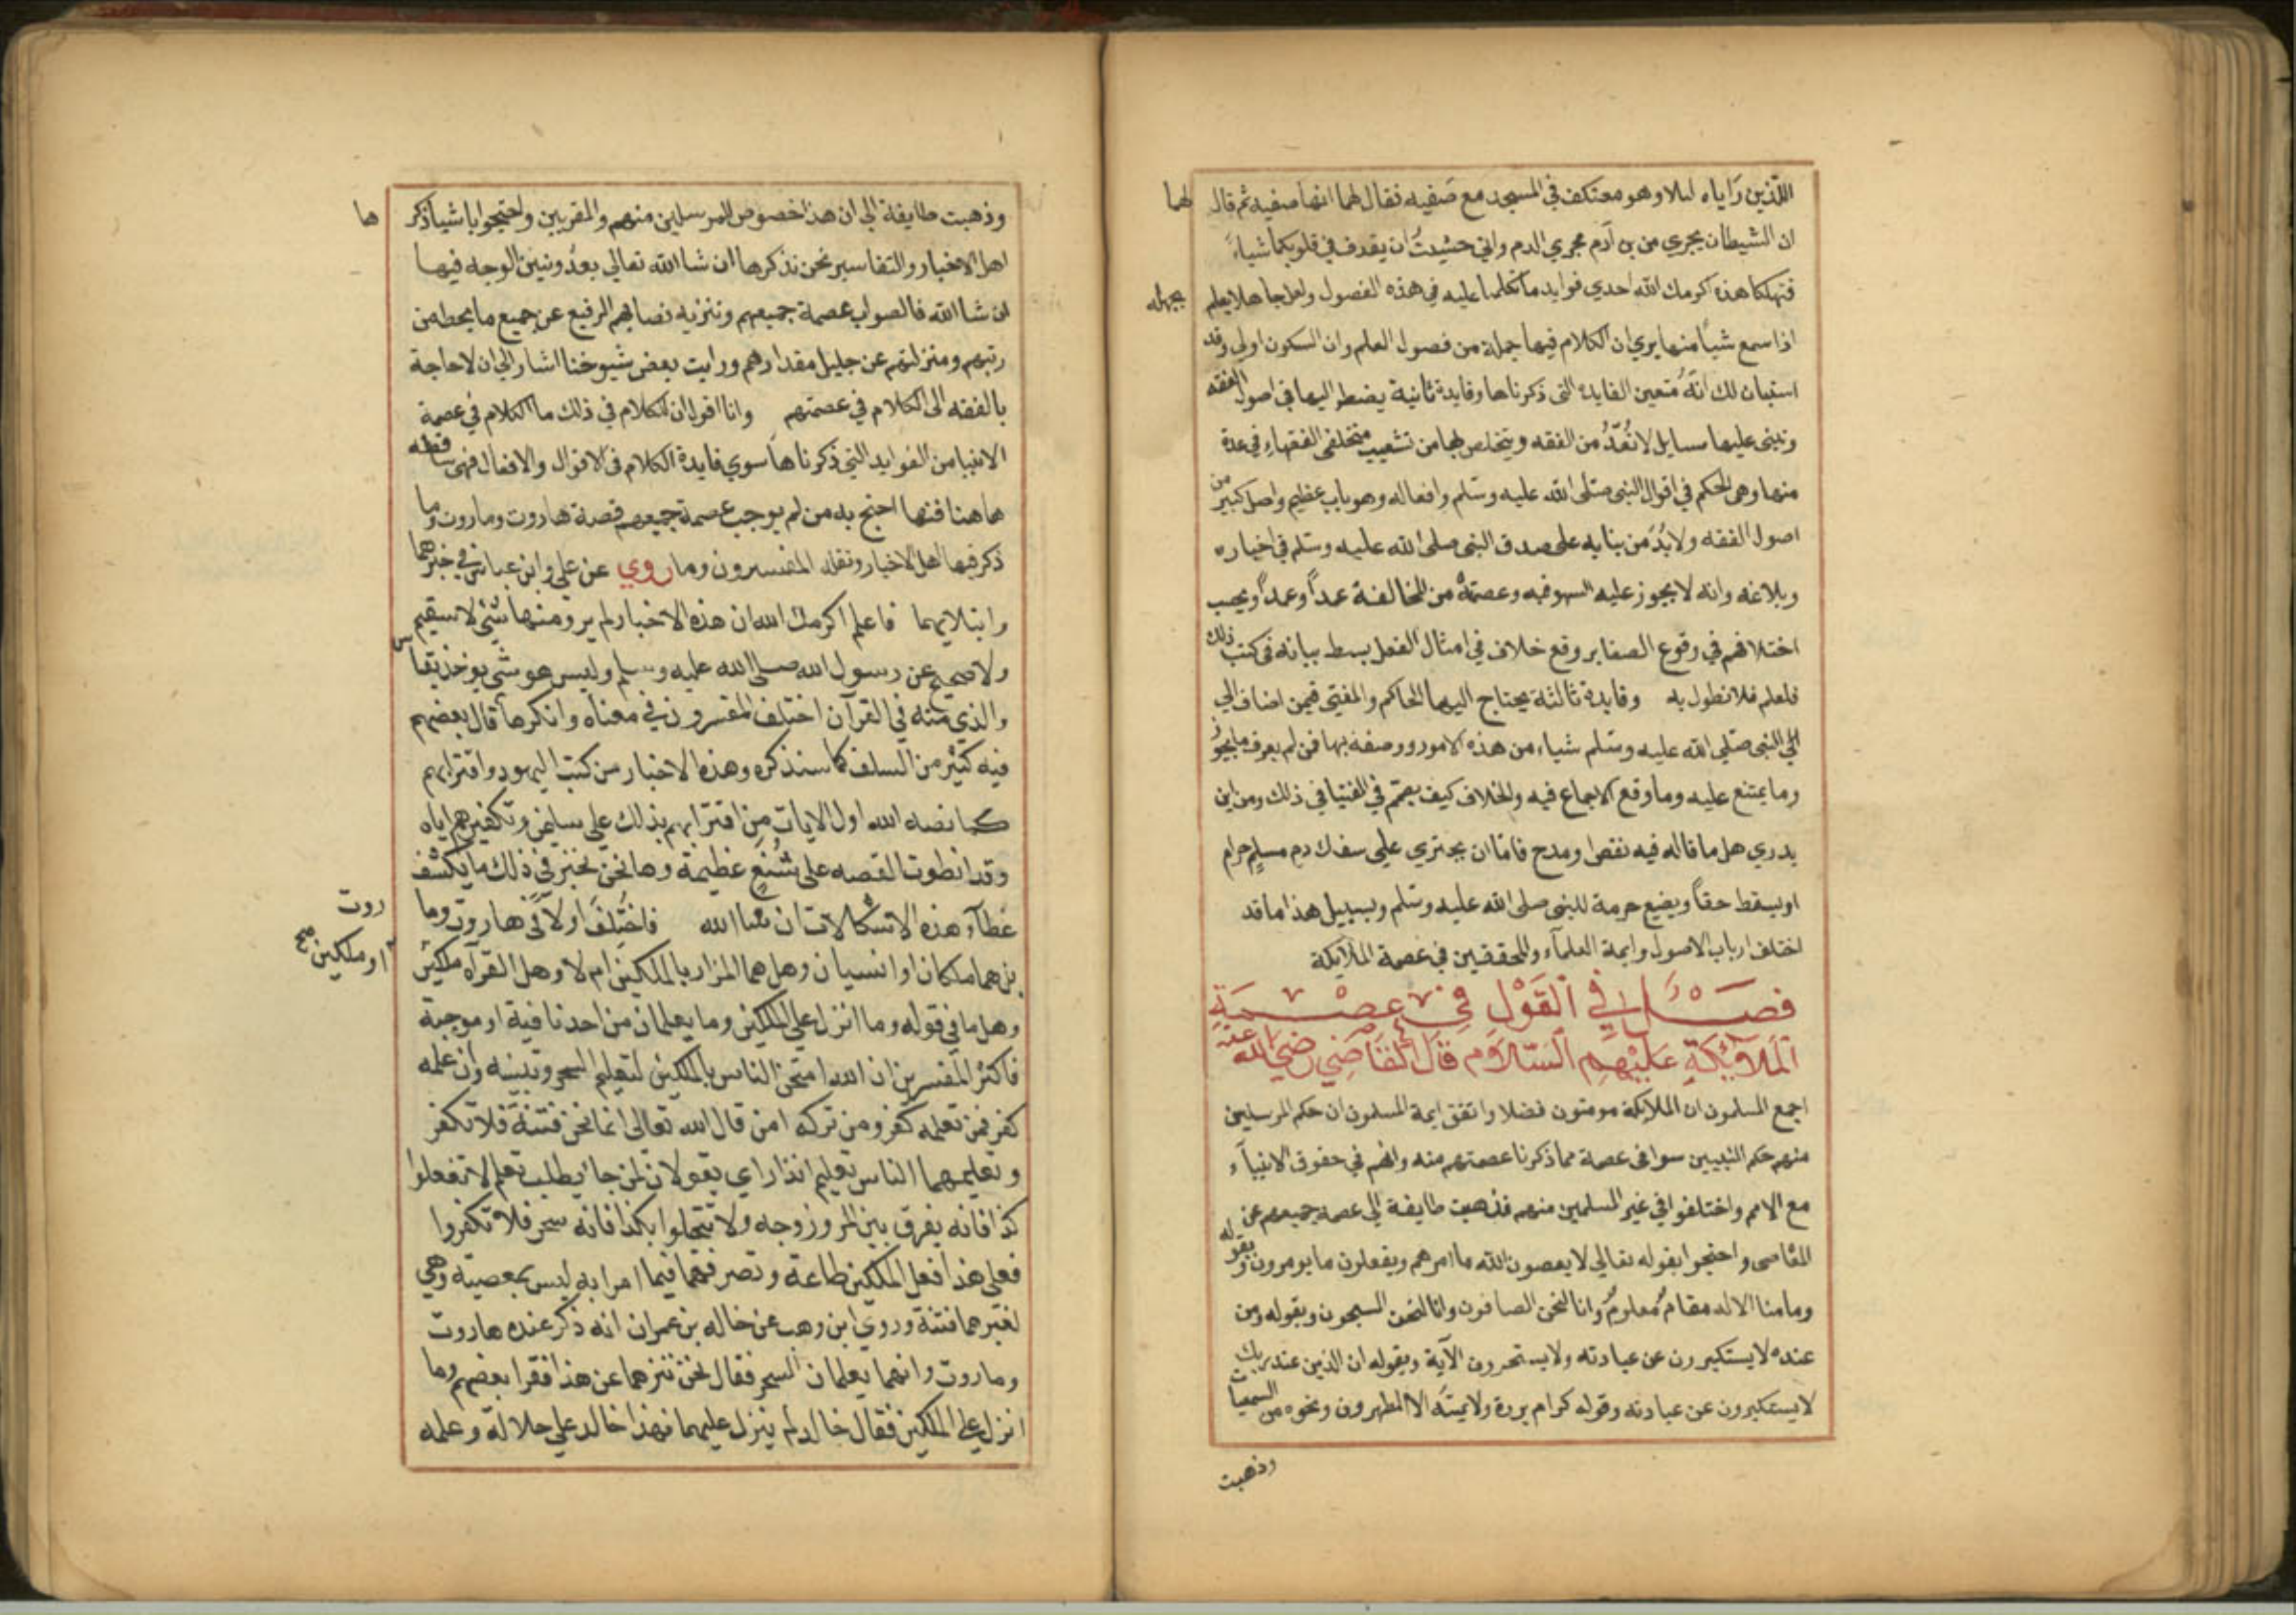 اللذين راياه ليلا وهو معتكف في المسجد مع صفيه فقال لهما انها صفيه ثم قال لهما
ان الشيطان يجري من بن آدم مجري الدم واني خشيت ان يقدف في قلوبكما شياء
فتهلكا هذه اكرمك الله احدي فوايد ما تكلمنا عليه في هذه الفصول ولعل جاهلا يعلم بجهله
اذا سمع شيا منها يري ان الكلام فيها جملة من فصول العلم وان السكوت اولي وقد
استبان لك انه متعين الفايدة التي ذكرناها وفايدة ثانية يضطر اليها في اصول الفقه
ونبنى عليها مسايل لا تعد من الفقه ويتخلص بها من تشعيب مختلفي الفقهاء في عدة
منها وهى الحكم في اقوال النبي صلى الله عليه وسلم وافعاله وهو باب عظيم واصل كبير من
اصول الفقه ولا بد من بنايه على صدق النبي صلى الله عليه وسلم في اخباره
وبلاغه وانه لا يجوز عليه السهو فيه وعصمته من المخالفة عمدا وعمدا ويحب
اختلافهم في وقوع الصغاير وقع خلاف في امثال الفعل بسط بيانه في كتب ذلك
فلعلم فلا نطول به وفايدة ثالثة يحتاج اليها الحاكم والمفتي فيمن اضاف الي
الى النبي صلى الله عليه وسلم شياء من هذه الامور ووصفه بها فمن لم يعرف ما يجوز
وما يمتنع عليه وما وقع الاجماع فيه والخلاف كيف يصمم في الفتيا في ذلك ومن اين
يدري هل ما قاله فيه نقص او مدح فاما ان يجتري على سفك دم مسلم حرام
او يسقط حقا ويضيع حرمة للنبي صلى الله عليه وسلم وبسبيل هذا ما قد
اختلف ارباب الاصول وايمة العلماء والمحققين في عصمة الملايكة
فصل في القول في عصمة
الملائكة عليهم السلام قال القاضي رضي الله عنه
اجمع المسلمون ان الملايكة مومنون فضلا واتفق ايمة المسلمون ان حكم المرسلين
منهم حكم النبيين سوا في عصمة مما ذكرنا عصمتهم منه وانهم في حقوق الانبياء
مع الامم واختلفوا في غير المسلمين منهم فذهبت طايفة الي عصمة جميعهم عن
المعاصى واحتجوا بقوله تعالي لا يعصون الله ما امرهم ويفعلون ما يومرون وبقوله
وما منا الا له مقام معلوم وانا لنحن الصافون وانا لنحن المسبحون وبقوله ومن
عنده لا يستكبرون عن عبادته ولا يستحسرون الآية وبقوله ان الذين عند ربك
لا يستكبرون عن عبادته وقوله كرام بررة ولا يمسه الا المطهرون ونحوه من السمعيات
وذهبت
وذهبت طايفة الي ان هذا خصوص للمرسلين منهم والمقربين واحتجوا باشيا ذكرها
اهل الاخبار والتفاسير نحن نذكرها ان شا الله تعالي بعد ونبين الوجه فيها
ان شا الله فالصواب عصمة جميعهم وتنزيه نصابهم الرفيع عن جميع ما يحط من
رتبهم ومنزلتهم عن جليل مقدارهم ورايت بعض شيوخنا اشار الي ان لا حاجة
بالفقه الى الكلام في عصمتهم وانا اقول ان للكلام في ذلك ما الكلام في عصمة
الانبيا من الفوايد التي ذكرناها سوي فايدة الكلام في الاقوال والافعال فهي ساقطه
هاهنا فمنها احتج به من لم يوجب عصمة جميعهم قصة هاروت وماروت وما
ذكر فيها اهل الاخبار ونقله المفسرون وما روي عن علي وابن عباس في خبرهما
وابتلايهما فاعلم اكرمك الله ان هذه الاخبار لم يرو منها شي لا سقيم
ولا صحيح عن رسول الله صلى الله عليه وسلم وليس هو شي يوخذ بقياس
والذي منه في القرآن اختلف المفسرون في معناه وانكر ما قال بعضهم
فيه كثير من السلف كما سنذكره وهذه الاخبار من كتب اليهود وافترايهم
كما نصه الله اول الايات من افترايهم بذلك علي سليمن وتكفيرهم اياه
وقد انطوت القصه على شنع عظيمة وها نحن نخبر في ذلك ما يكشف
غطآء هذه الاشكالات ان شا الله فاختلف اولا في هاروت وماروت
هل هما ملكان او انسيان وهل هما المراد بالملكين ام لا وهل القرآه ملكين او ملكين صح
وهل ما في قوله وما انزل علي الملكين وما يعلمان من احد نافية او موجبة
فاكثر المفسرين ان الله امتحن الناس بالملكين لتعليم السحر وتبيينه وان علمه
كفر فمن تعلمه كفر ومن تركه امن قال الله تعالى انما نحن فتنة فلا تكفر
وتعليمهما الناس تعليم انذار اي يقولان لمن جا يطلب تعلم لا تفعلوا
كذا فانه يفرق بين المر وزوجه ولا تتحلوا بكذا فانه سحر فلا تكفروا
فعلى هذا فعل الملكين طاعة وتصرفهما فيما امرا به ليس بمعصية وهي
لغيرهما فتنة وروي ابن وهب عن خالد بن عمران انه ذكر عنده هاروت
وماروت وانهما يعلمان السحر فقال نحن ننزهما عن هذا فقرا بعضهم وما
انزل علي الملكين فقال خالد لم ينزل عليهما فهذا خالد علي جلالته وعلمه